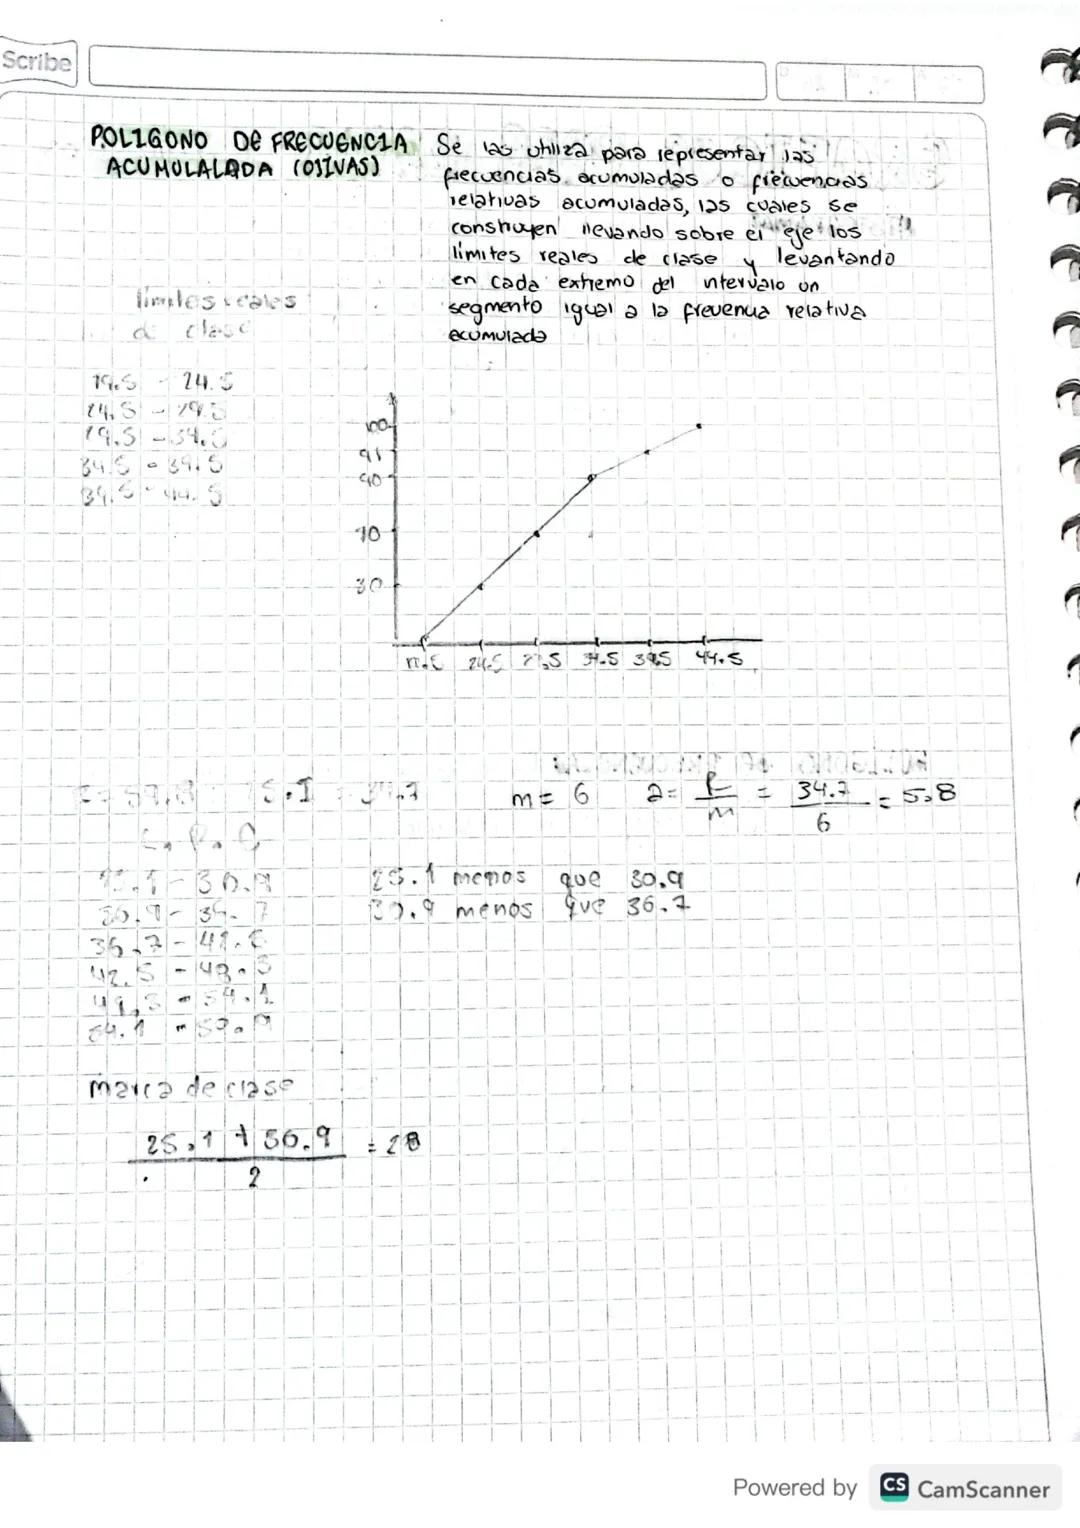 Scribe
POLIGONO DE FRECUENCIA
ACUMULALADA (OJIVAS)
Se las utiliza para representar las
frecuencias acumuladas o frecuencias
relativas acumuladas, las cuales se
construyen llevando sobre el eje los
limites reales de clase y levantando
en cada extremo del intervalo un
segmento igual a la frevenua relativa
acumulada
limites reales
de clase
19.5 - 24.5
24.5 - 29.5
29.5 - 34.5
34.5 - 39.5
39.5 - 44.5
100
95
90
70
30
24.5 34.5 39.5 44.5
34.7
m = 6
a = R/m = 34.7/6 = 5,8
25.1 - 30.9
30.9 - 36.7
36.7 - 42.5
42.5 - 48.3
48.3 - 54.1
54.1 - 59.9
25.1 menos que 30.9
30.9 menos que 36.7
marca de clase
25.1 + 30.9 = 28
2
Powered by CS CamScanner